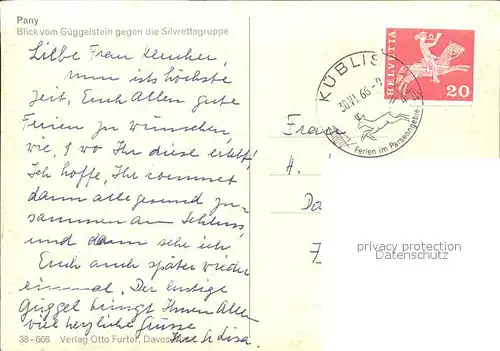 Pany
Blick vom Güggelstein gegen die Silvrettagruppe
Liebe Frau
nun ists höchste
Zeit, Euch Allen gute
Ferien zu wünschen,
wie, & wo Ihr diese erlebt!
Ich hoffe, Ihr kommet
dann alle gesund zu-
sammen am Schluss,
und dann sehe ich
Euch auch später wieder
einmal. Der lustige
Güggel bringt Ihnen Allen
viel herzliche Grüsse
Ihre
38-666 Verlag Otto Furter, Davos
KÜBLIS
30.VI.66
Ferien im Parsenngebiet
HELVETIA
20
Frau
H.
Da
7
privacy protection
Datenschutz